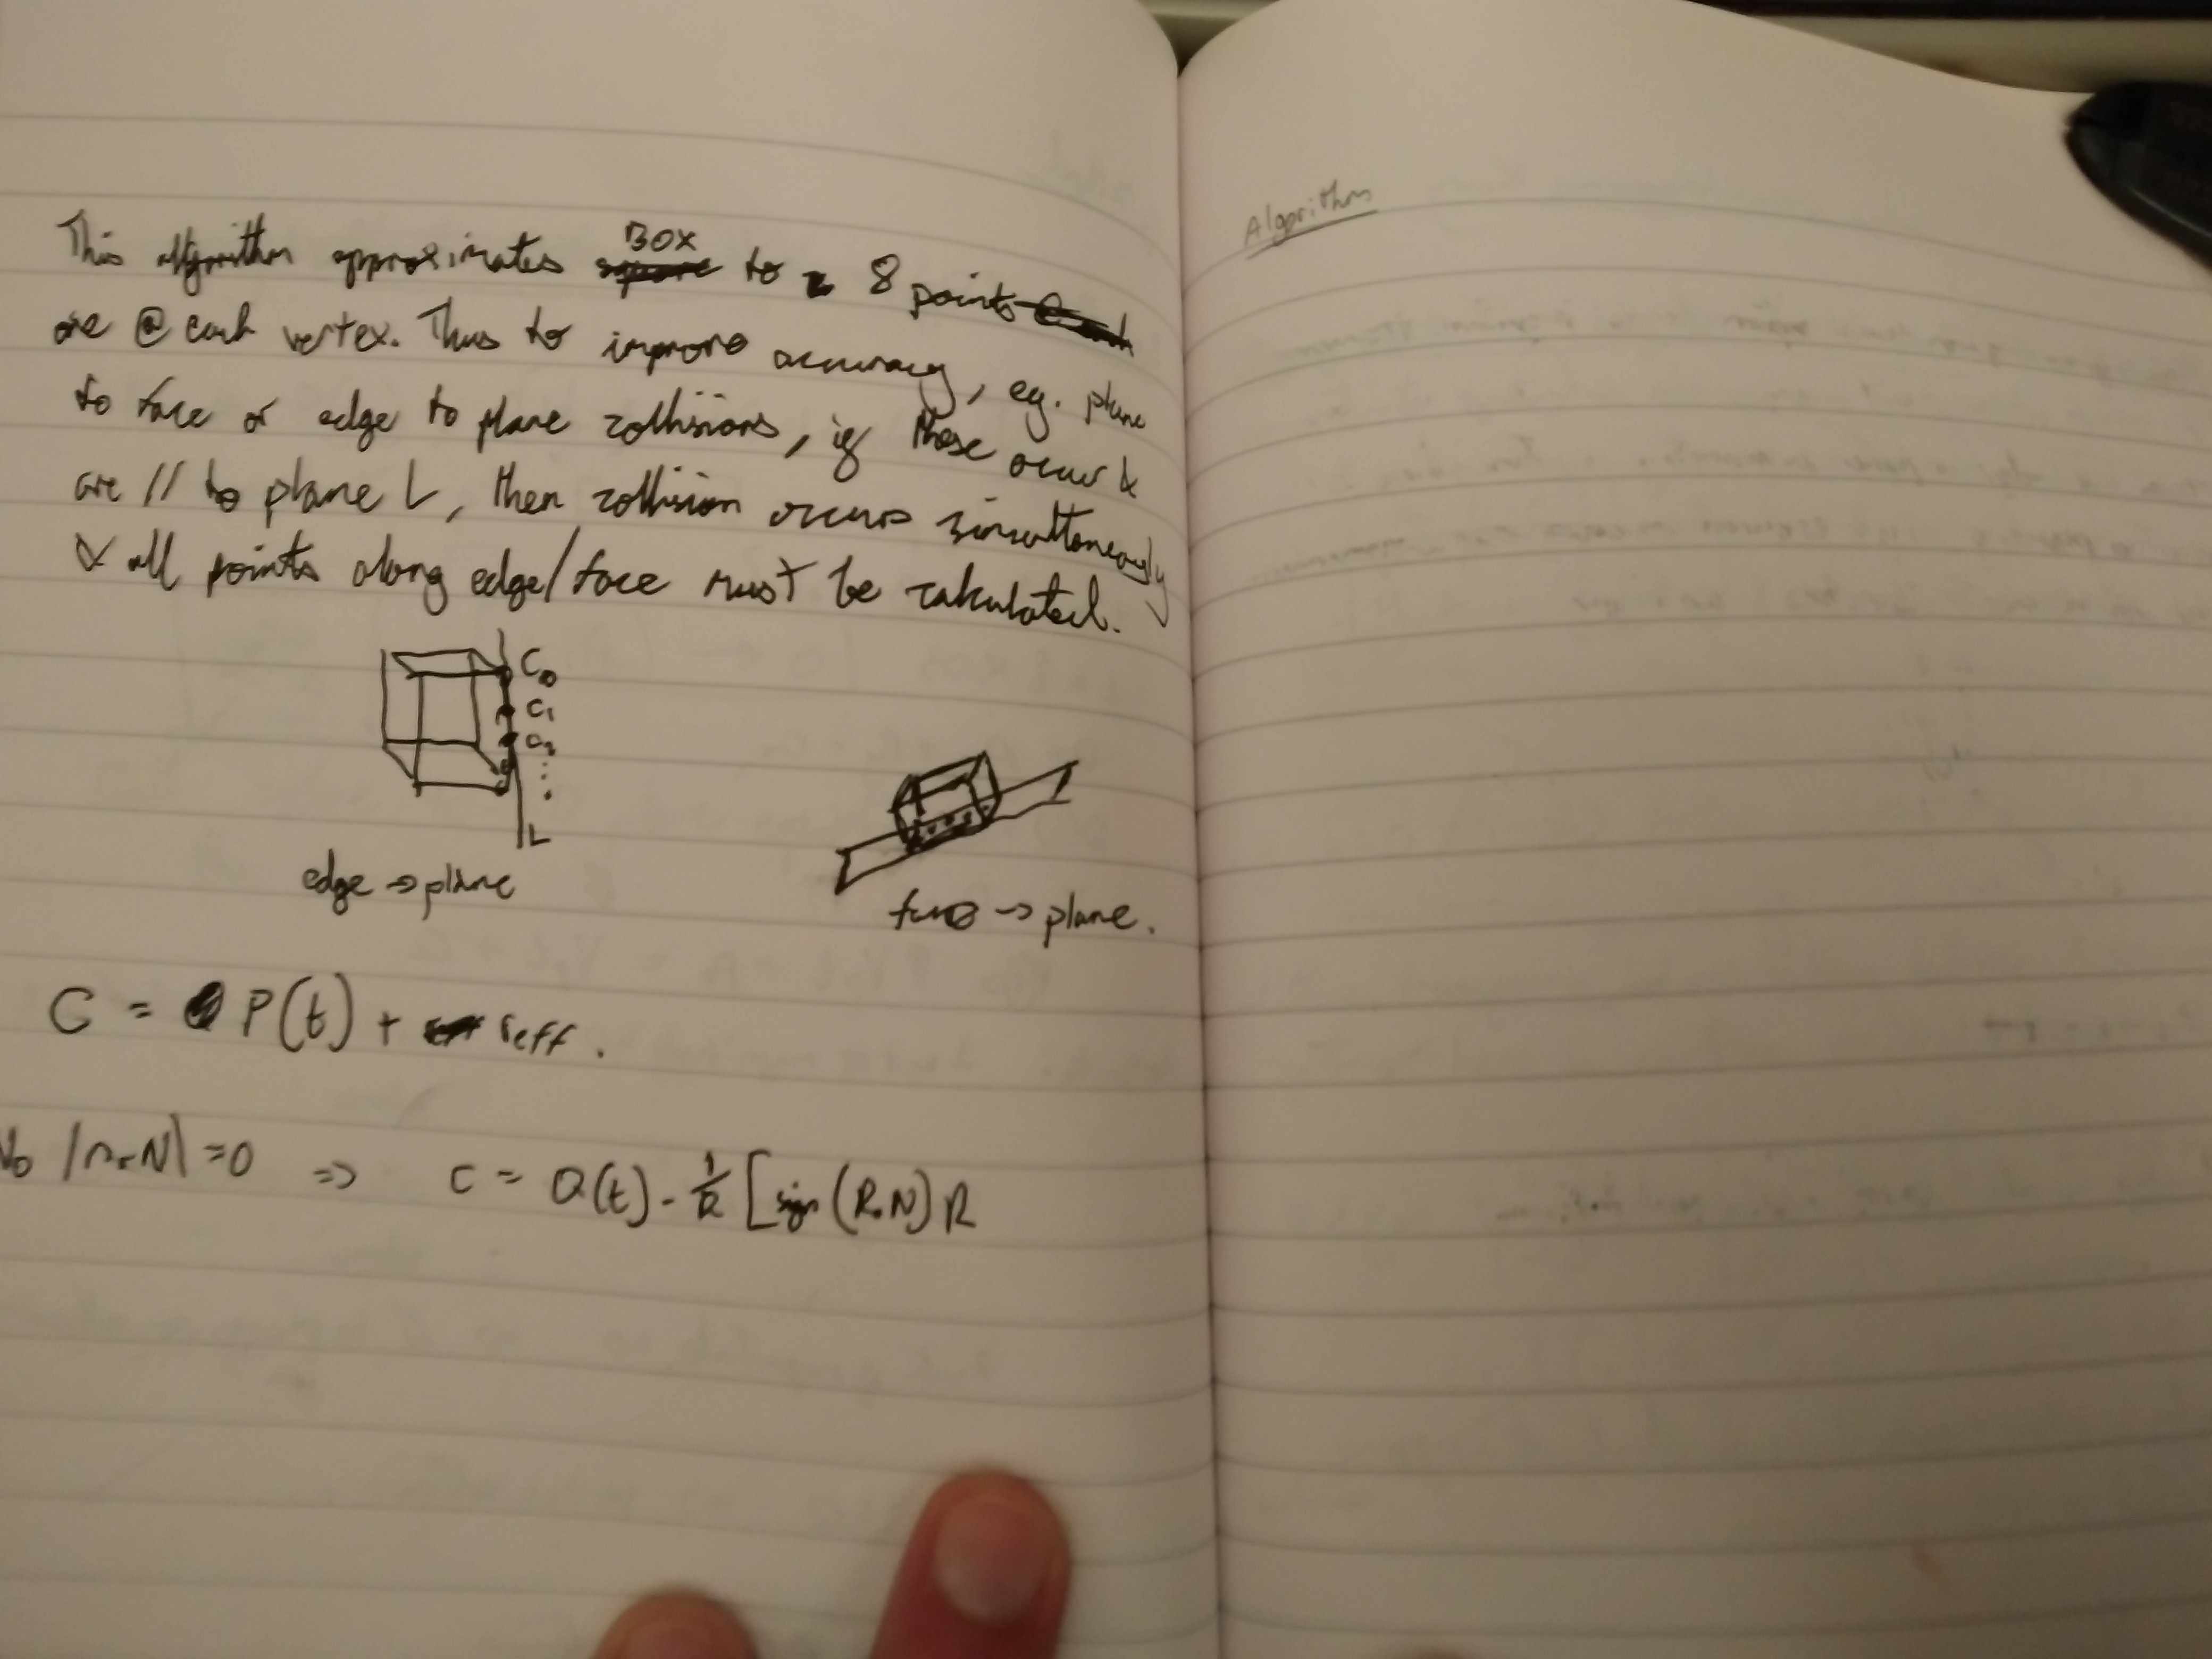 This algorithm approximates BOX to 8 points
one @ each vertex. Thus to improve accuracy, eg. plane
to face or edge to plane collisions, if these occur &
are // to plane L, then collision occurs simultaneously
& all points along edge/face must be calculated.
C₀
C₁
C₂
L
edge → plane
face → plane.
C = P(t) + reff.
=0 ⇒ C = Q(t) - [sign (R.N) R
Algorithm